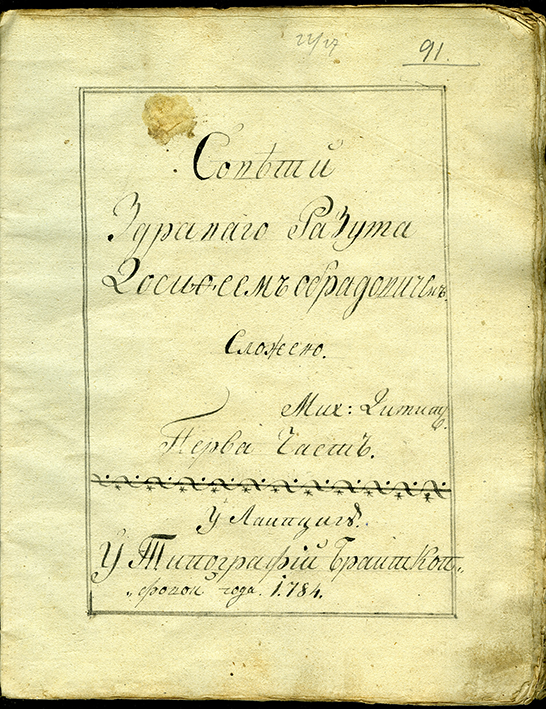 91.
Совѣти
Здраваго Разума
Досиѳеемъ обрадовичемъ
Сложено.
Мих: Витков
Перва Частъ.
У Лаипцигѣ.
У Типографїй Браиткоп„
„фовой года. 1.784.